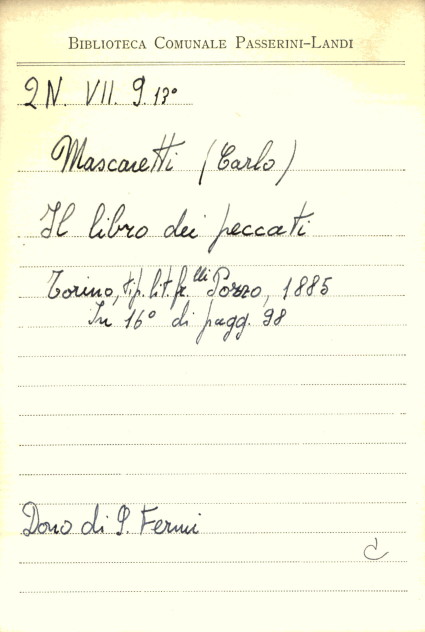 BIBLIOTECA COMUNALE PASSERINI-LANDI
2N. VII. 9. 13°
Mascaretti (Carlo)
Il libro dei peccati
Torino, tip. lit. fr.lli Pozzo, 1885
In 16° di pagg. 98
Dono di S. Fermi